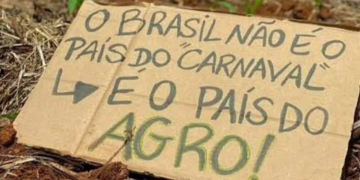 O BRASIL NÃO É O
PAÍS DO "CARNAVAL"
É O PAÍS DO
AGRO!